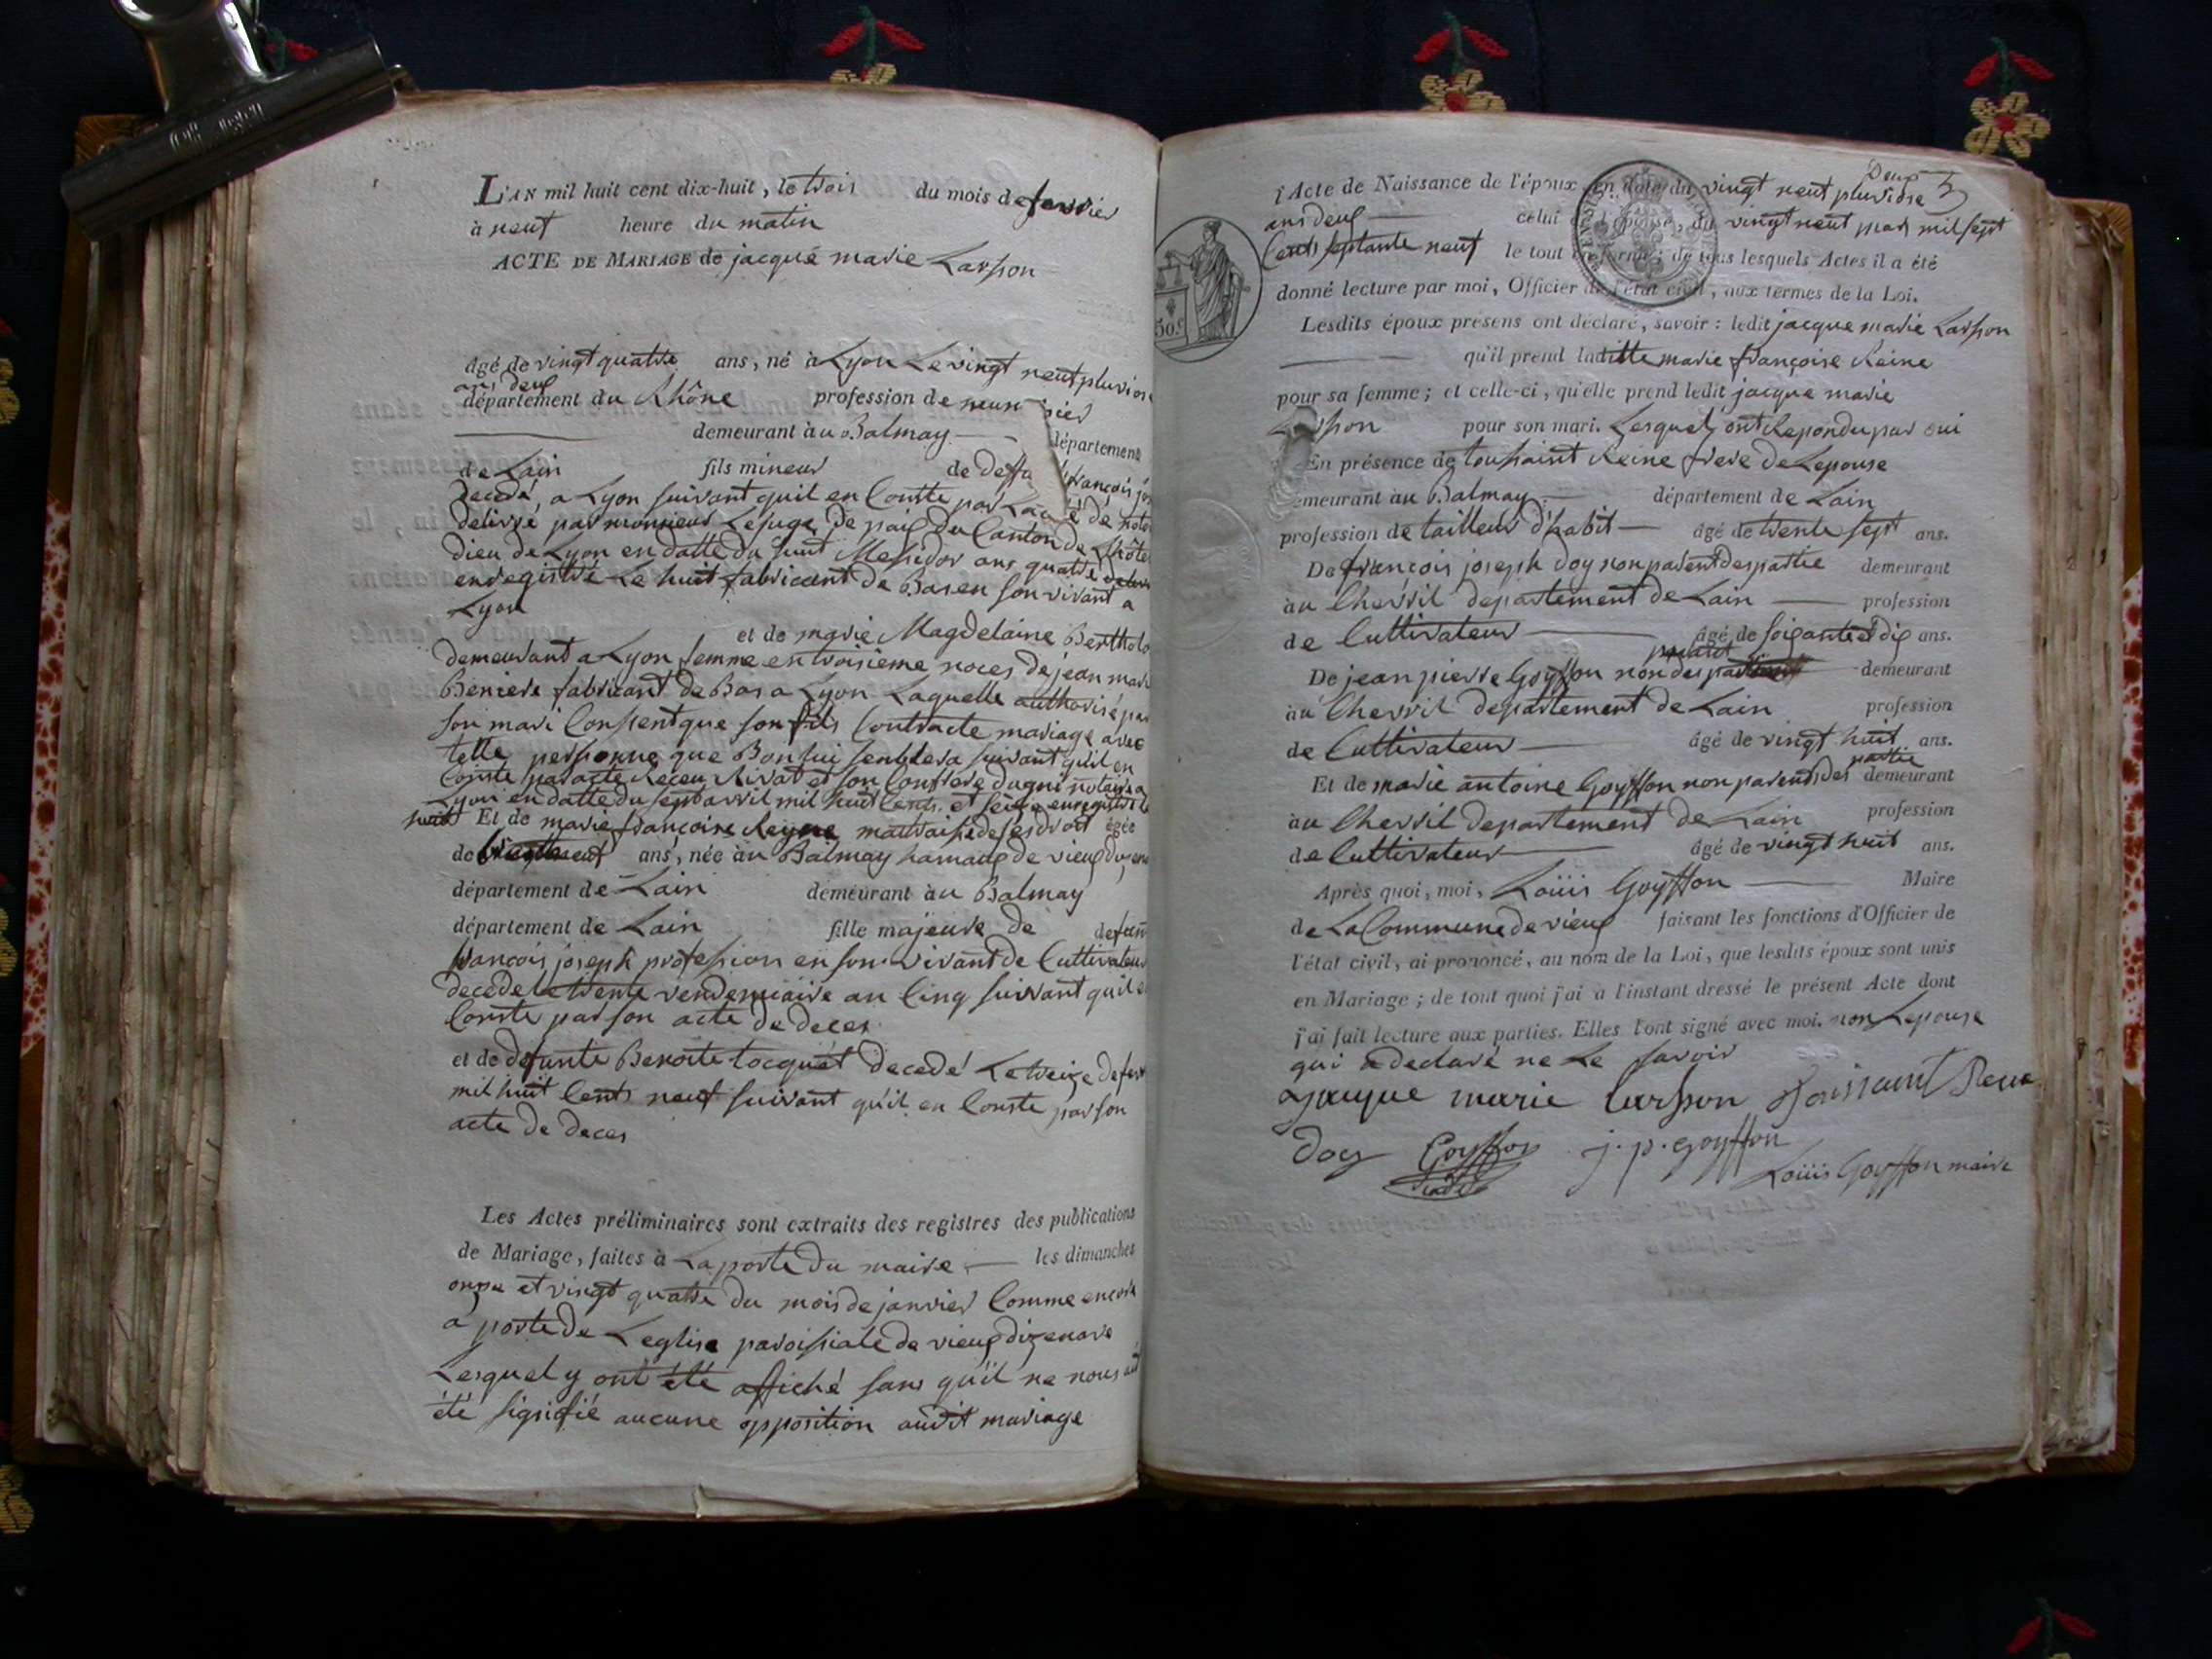 L'AN mil huit cent dix-huit, le trois du mois de fevrier
à neuf heure du matin
ACTE DE MARIAGE de jacque marie Larpon
âgé de vingt quatre ans, né à Lyon Le vingt neuf pluviose
ans deux
département du Rhône profession de
demeurant à au Balmay département
de Lain fils mineur de deffu françois
decedé, a Lyon suivant quil en Conste par de
delivré par monsieur Lejuge de paix du Canton de Lhôtel
dieu de Lyon en datte du huit Messidor ans quatre
enregistré Le huit fabricant de Bas en son vivant a
Lyon
et de marie Magdelaine
demeurant a Lyon femme en troisieme noces de jean mari
Beniere fabricant de Bas a Lyon Laquelle authorisé par
son mari Consent que son fils Contracte mariage avec
telle personne que Bon lui senblera suivant quil en
Conste par acte Receu Rivat et son Confrere dugni notaire a
Lyon en datte du sept avril mil huit Cents et seize enregistré le
huit Et de marie françoise Reyne maitraise de ses droit âgée
de ans, née à au Balmay hamaux de vieux
département de Lain demeurant à au Balmay
département de Lain fille majeure de defunt
françois joseph profession en son vivant de Cultivateur
decede Le trente vendemiaire an Cinq suivant quil en
Conste par son acte de deces
et de defunte Benoite tocquet decedé Le treize de fevr
mil huit Cents neuf suivant qu'il en Conste par son
acte de deces
Les Actes préliminaires sont extraits des registres des publications
de Mariage, faites à La porte du maire les dimanches
onze et vingt quatre du mois de janvier Comme encore
a porte de Leglise paroissiale de vieux dizenave
Lesquel y ont été affiché sans qu'il ne nous ait
été signifié aucune opposition audit mariage
l'Acte de Naissance de l'époux en date du vingt neuf pluviose
Deux
ans deux celui de l'épouse, du vingt neuf mars mil sept
Cents septante neuf le tout en forme; de tous lesquels Actes il a été
donné lecture par moi, Officier de l'état civil, aux termes de la Loi.
50 c
Lesdits époux présens ont déclaré, savoir: ledit jacque marie Larpon
qu'il prend laditte marie françoise Reine
pour sa femme; et celle-ci, qu'elle prend ledit jacque marie
Larpon pour son mari. Lesquel ont Repondu par oui
En présence de toussaint Reine frere de Lepouse
demeurant à au Balmay département de Lain
profession de tailleur d'habit âgé de trente sept ans.
De françois joseph doy non parent des partie demeurant
à au Chevril departement de Lain profession
de Cultivateur âgé de soixante et dix ans.
De jean pierre Goyffon non des demeurant
à au Chevril departement de Lain profession
de Cultivateur âgé de vingt huit ans.
partie
Et de marie antoine Goyffon non parents des demeurant
à au Chevril departement de Lain profession
de Cultivateur âgé de vingt huit ans.
Après quoi, moi, Loüis Goyffon Maire
de La Commune de vieux faisant les fonctions d'Officier de
l'état civil, ai prononcé, au nom de la Loi, que lesdits époux sont unis
en Mariage; de tout quoi j'ai à l'instant dressé le présent Acte dont
j'ai fait lecture aux parties. Elles l'ont signé avec moi. non Lepouse
qui a declaré ne Le savoir
Jacque marie larpon Toissaint Rene
Doy Goyffon j. p. goyffon
Loüis Goyffon maire